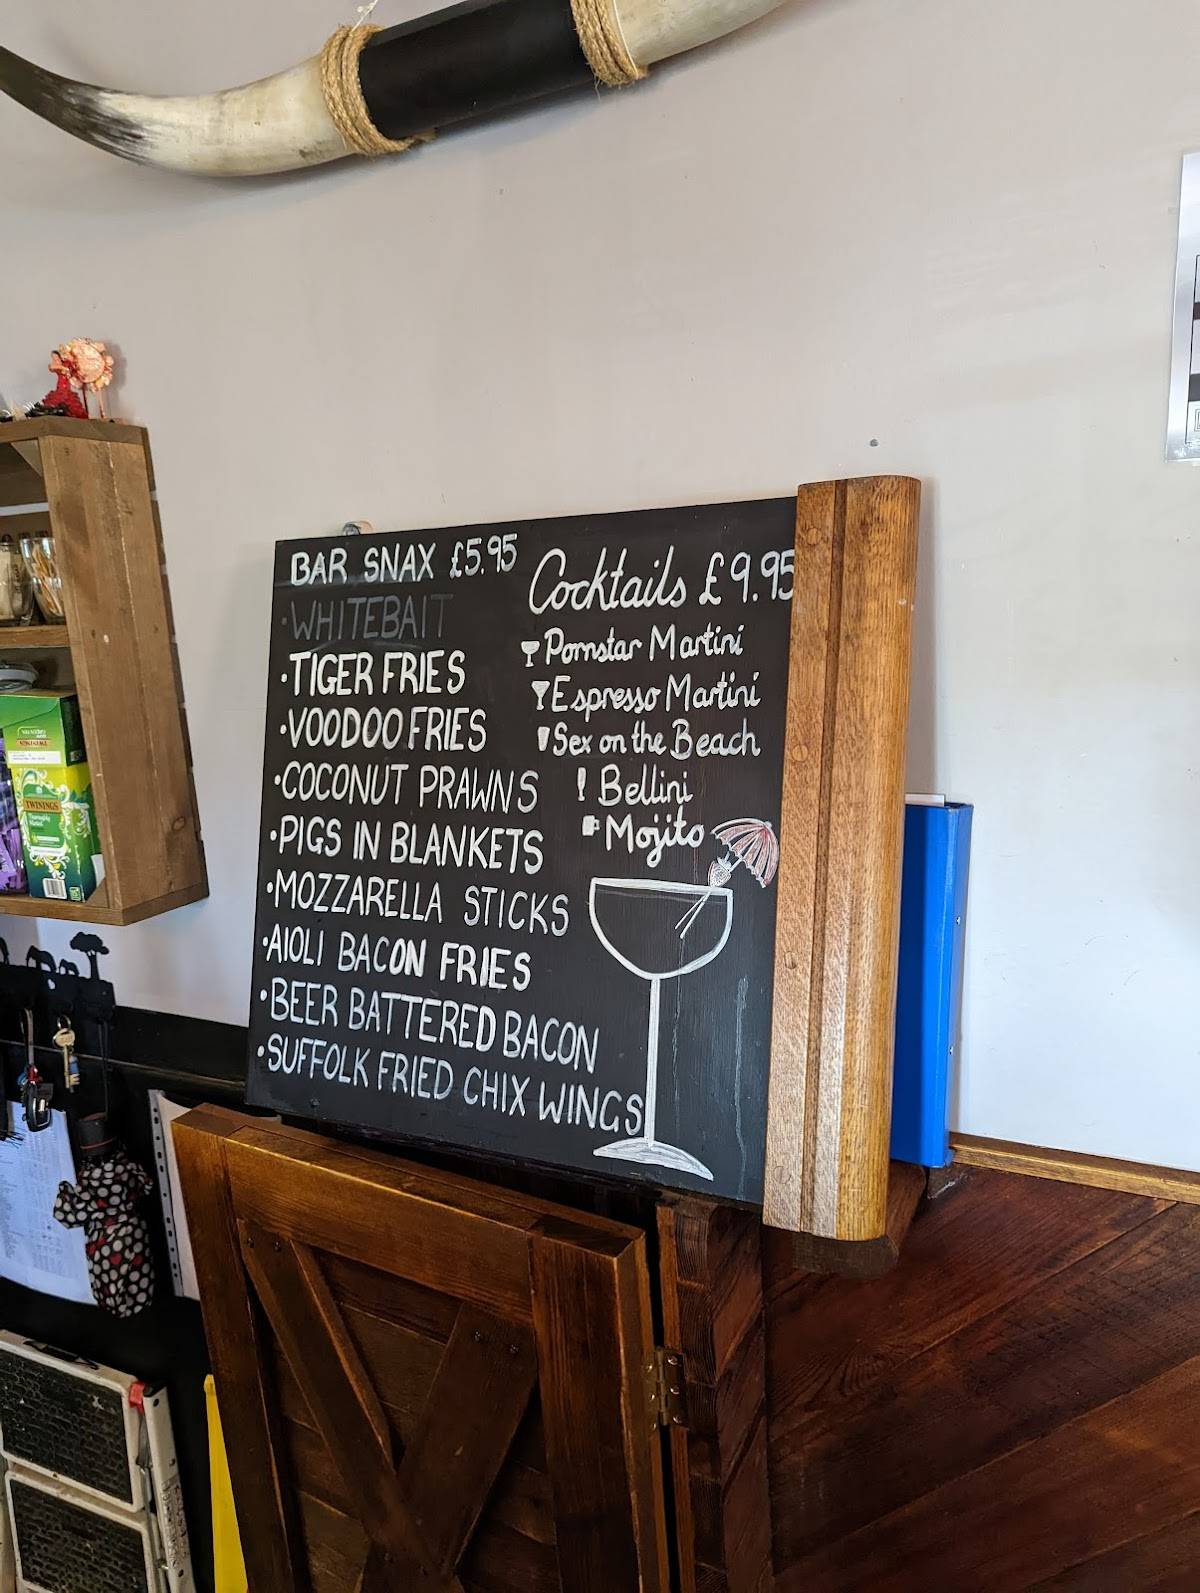 BAR SNAX £5.95
·WHITEBAIT
·TIGER FRIES
·VOODOO FRIES
·COCONUT PRAWNS
·PIGS IN BLANKETS
·MOZZARELLA STICKS
·AIOLI BACON FRIES
·BEER BATTERED BACON
·SUFFOLK FRIED CHIX WINGS
Cocktails £9.95
Pornstar Martini
Espresso Martini
Sex on the Beach
Bellini
Mojito
TWININGS